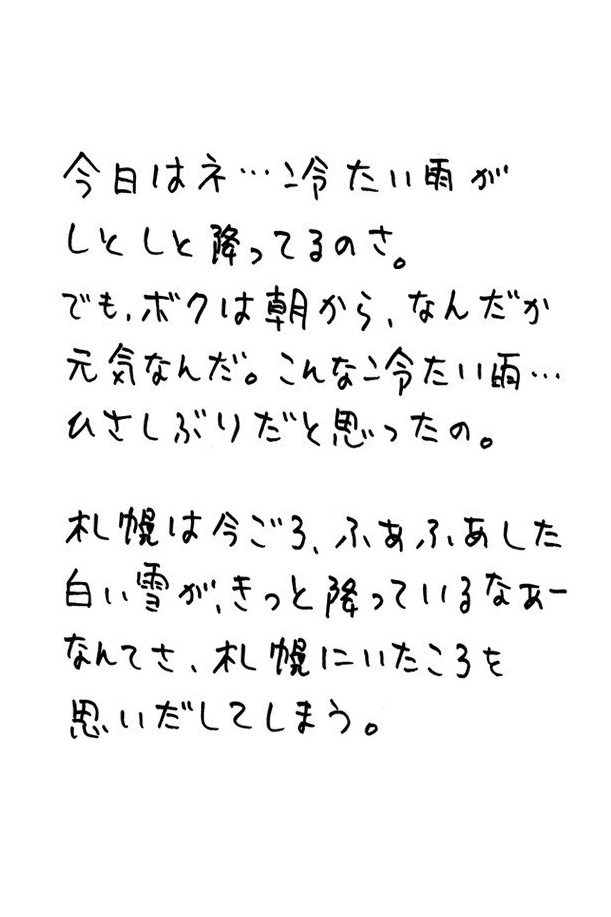 今日はネ…冷たい雨が
しとしと降ってるのさ。
でも、ボクは朝から、なんだか
元気なんだ。こんな冷たい雨…
ひさしぶりだと思ったの。
札幌は今ごろ、ふあふあした
白い雪が、きっと降っているなぁー
なんてさ、札幌にいたころを
思いだしてしまう。